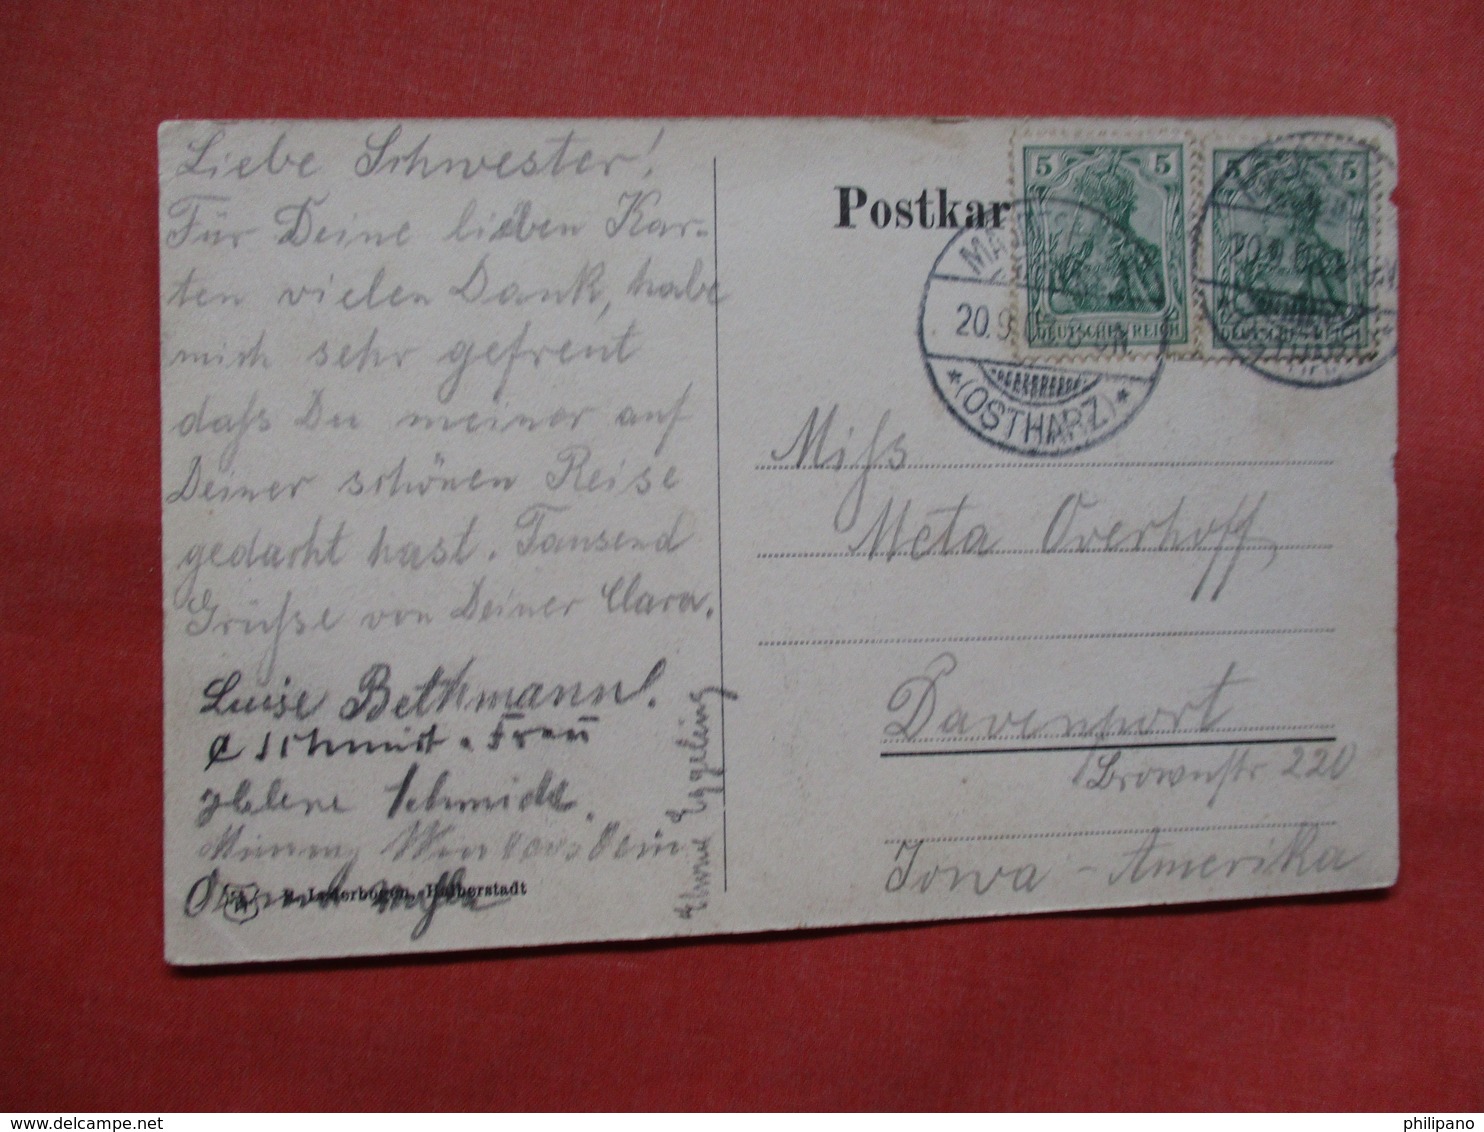 Liebe Schwester!
Für Deine lieben Kar-
ten vielen Dank, habe
mich sehr gefreut
daß Du meiner auf
Deiner schönen Reise
gedacht hast. Tausend
Grüße von Deiner Clara.
Luise Bethmann
Schmidt. Frau
Helene Schmidt.
Mimmy
Eggeling
Halberstadt
Postkar
5 5
DEUTSCHES REICH
5 5
DEUTSCHES REICH
20.9.
*(OSTHARZ)*
Miss
Meta Overhoff
Davenport
Brownstr 220
Iowa - Amerika
delcampe.net
philipano